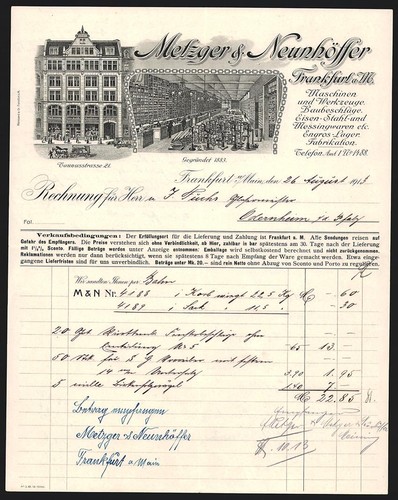 Metzger & Neunhöffer
Frankfurt a/M.
Maschinen
und Werkzeuge.
Baubeschläge.
Eisen-Stahl-und
Messingwaren etc.
Engros-Lager.
Fabrikation.
Telefon Amt I No 1488.
Taunusstrasse 21.
Gegründet 1883.
Frankfurt a/Main, den 26 August 1913
Rechnung für Herrn J. Fuchs Glasermeister
Fol. Odernheim
Verkaufsbedingungen: Der Erfüllungsort für die Lieferung und Zahlung ist Frankfurt a. M. Alle Sendungen reisen auf
Gefahr des Empfängers. Die Preise verstehen sich ohne Verbindlichkeit, ab Hier, zahlbar in bar spätestens am 30. Tage nach der Lieferung
Sconto. Fällige Beträge werden unter Anzeige entnommen. Emballage wird selbstkostend berechnet und nicht zurückgenommen.
Reklamationen werden nur dann berücksichtigt, wenn sie spätestens 8 Tage nach Empfang der Ware gemacht werden. Etwa eingegangene
Lieferfristen sind für uns unverbindlich. Beträge unter Mk. 20.— sind rein Netto ohne Abzug von Sconto und Porto zu regulieren.
Wir sandten Ihnen per Bahn
M & N No 4188 1 Korb wiegt 22.5 Kg M —.60
4189 1 Sack 11.5 " —.30
20 No 5 65 13.—
50
14 1.90 1.95
5 1.40 7.—
M 22.85
Betrag empfangen
Metzger & Neunhöffer
Frankfurt a Main